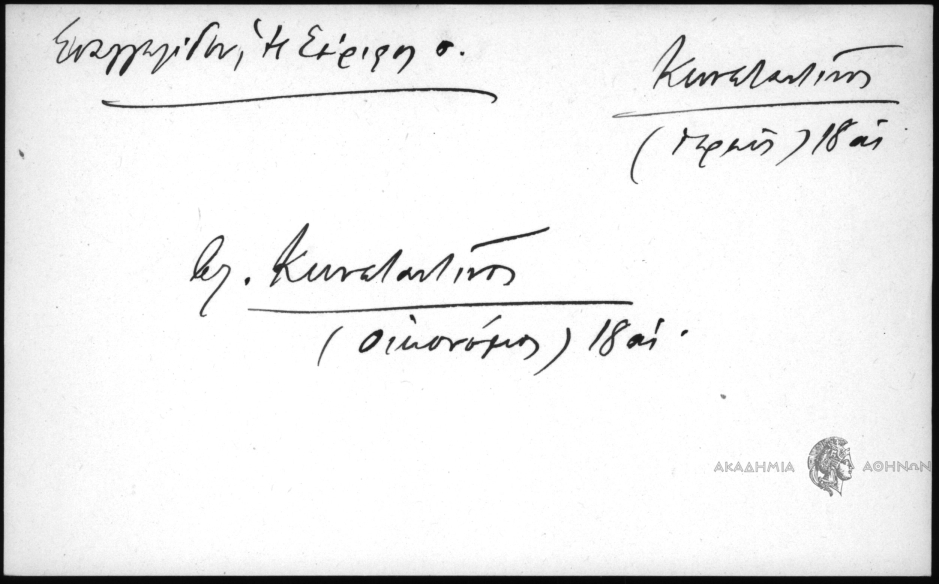 Ευαγγελίδου, Η Σέριφος σ.
Κωνσταντίνος
(ιερεύς) 18 αἰ.
βλ. Κωνσταντίνος
(οἰκονόμος) 18 αἰ.
ΑΚΑΔΗΜΙΑ ΑΘΗΝΩΝ